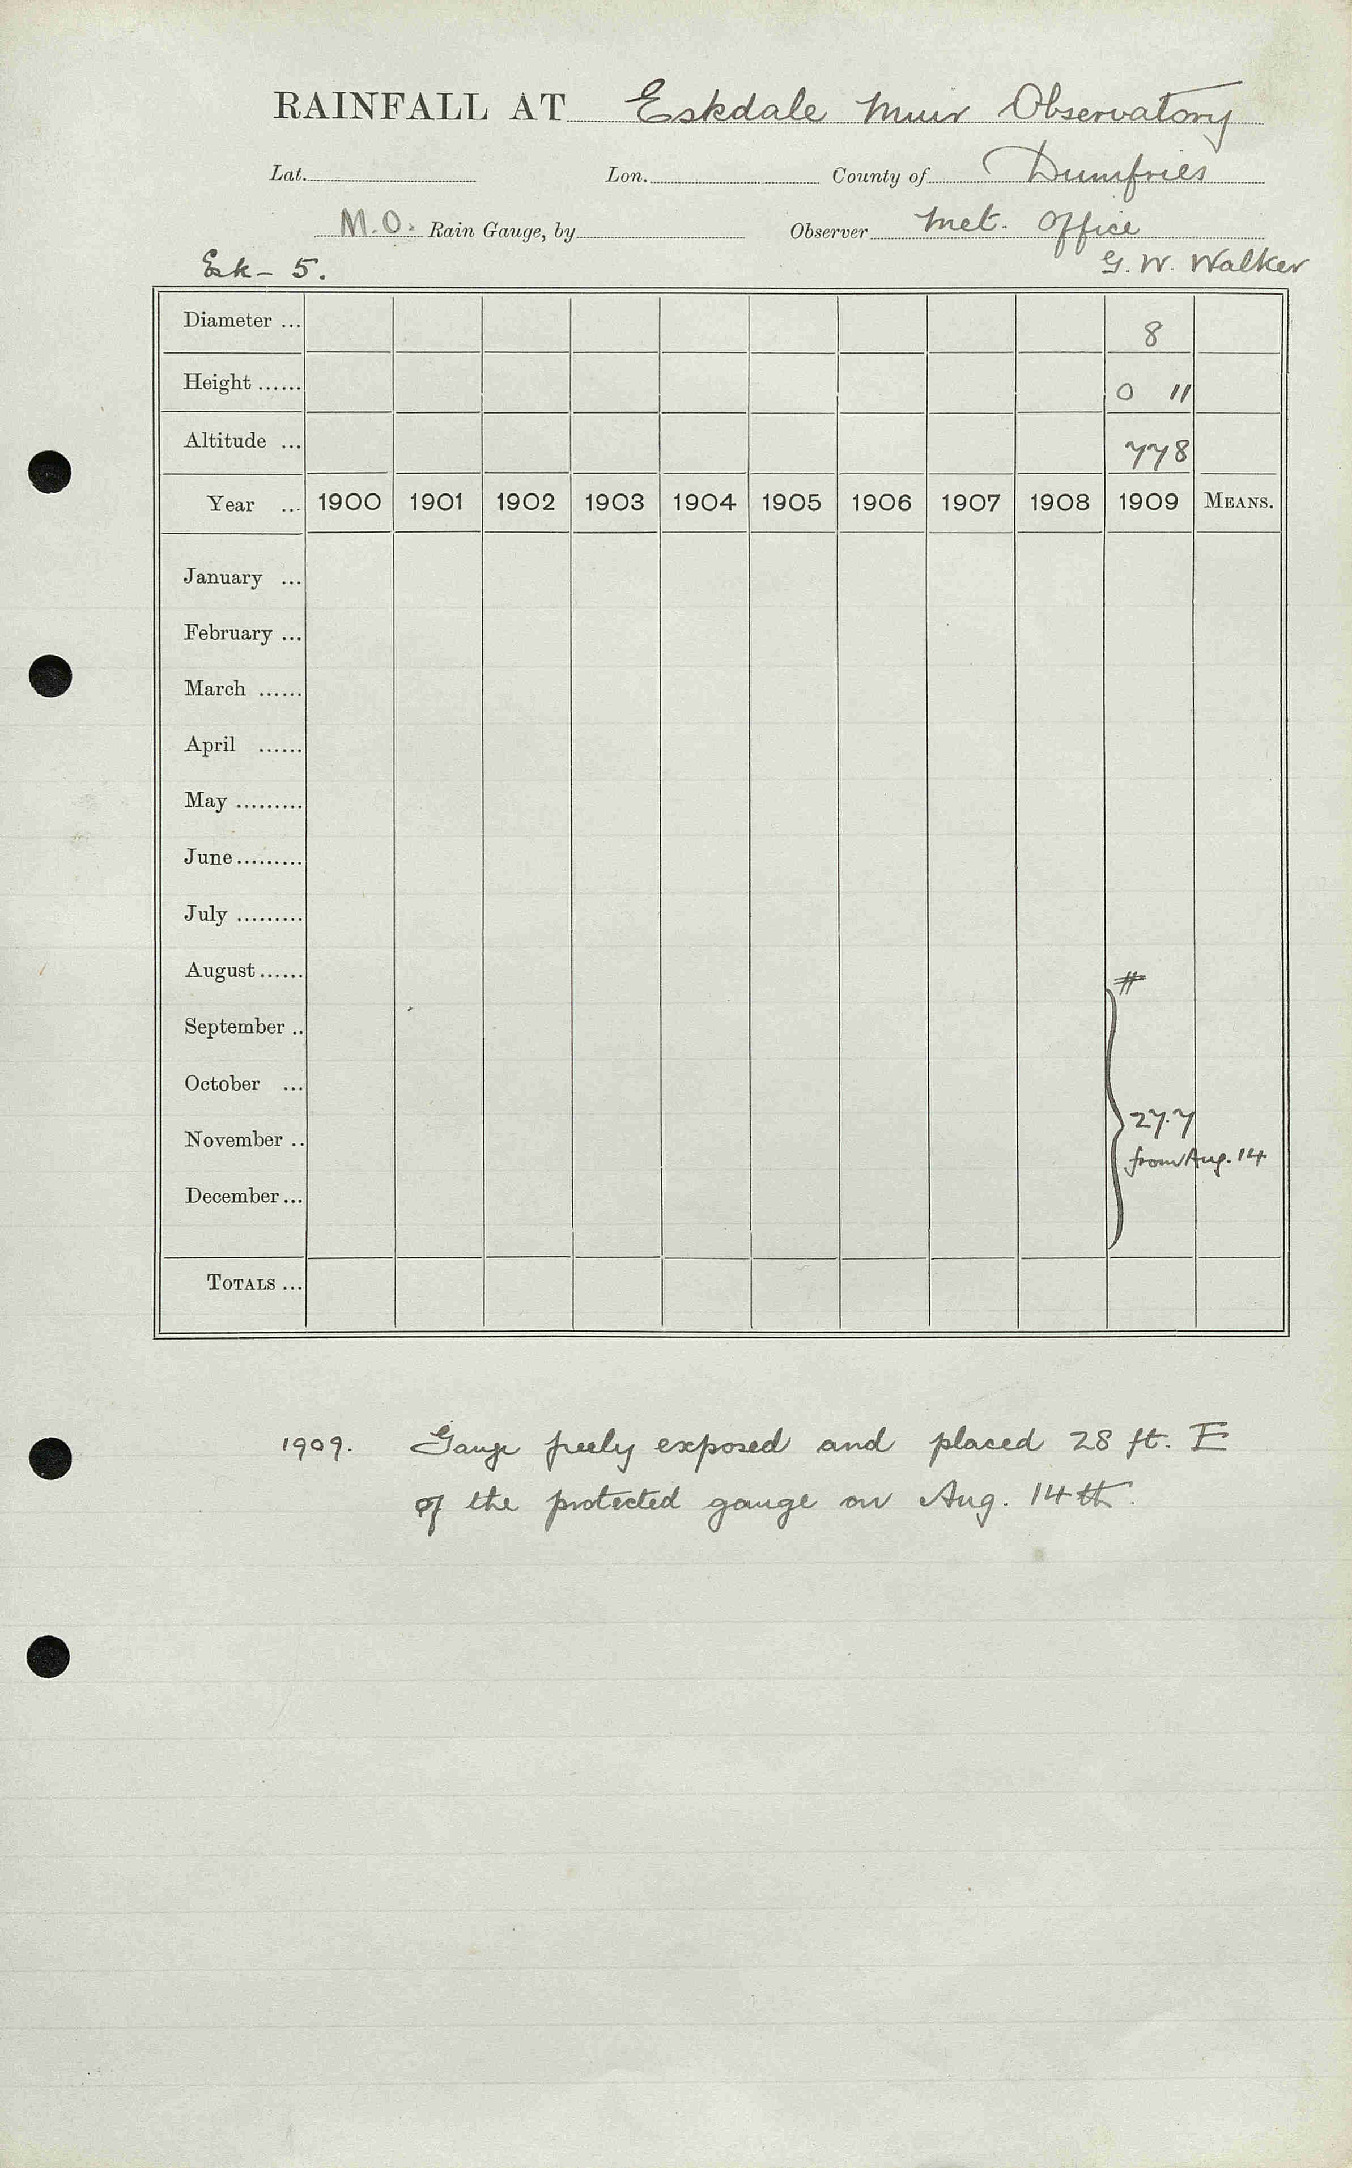 RAINFALL AT Eskdale Muir Observatory
Lat. Lon. County of Dumfries
M.O. Rain Gauge, by Observer Met. Office
Esk - 5. G. W. Walker
Diameter ... 8
Height ...... 0 11
Altitude ... 778
Year ... 1900 1901 1902 1903 1904 1905 1906 1907 1908 1909 MEANS.
January ...
February ...
March ......
April ......
May .........
June.........
July .........
August...... #
September ..
October ...
November .. 27.7
from Aug. 14
December...
TOTALS ...
1909. Gauge freely exposed and placed 28 ft. E
of the protected gauge on Aug. 14th.